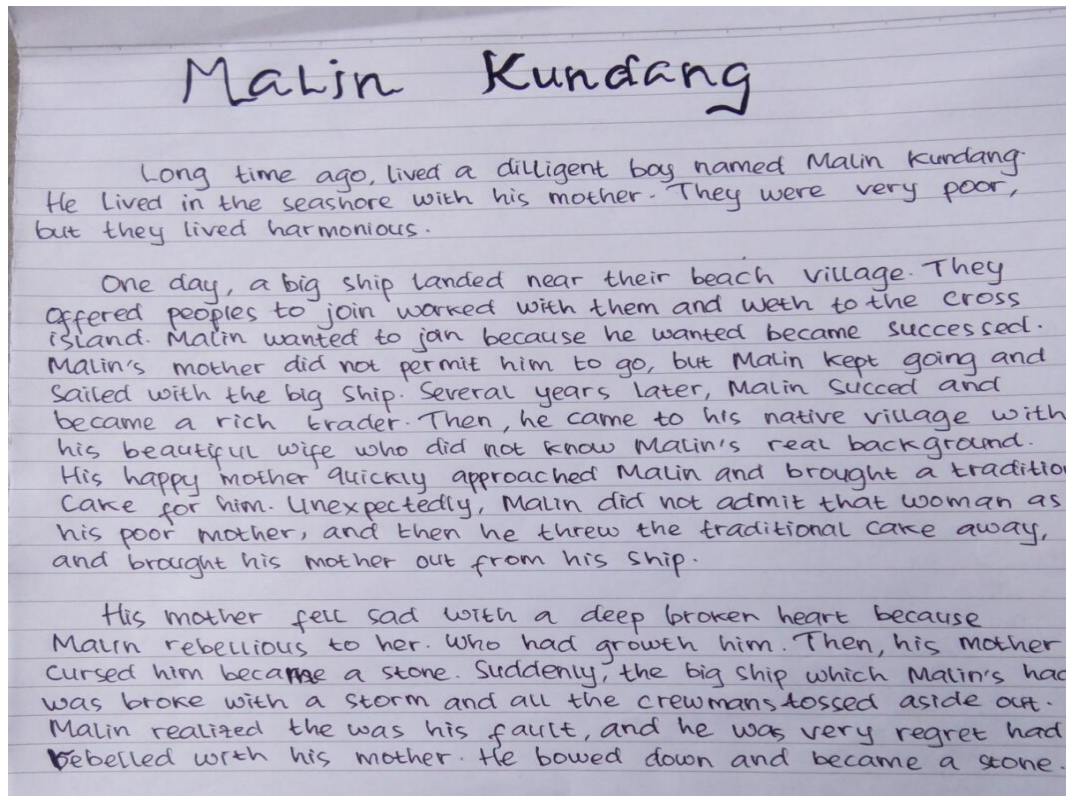 Malin Kundang
Long time ago, lived a dilligent boy named Malin Kundang.
He lived in the seashore with his mother. They were very poor,
but they lived harmonious.
One day, a big ship landed near their beach village. They
offered peoples to join worked with them and weth to the cross
island. Malin wanted to jan because he wanted became successed.
Malin's mother did not permit him to go, but Malin kept going and
sailed with the big ship. Several years later, Malin succed and
became a rich trader. Then, he came to his native village with
his beautiful wife who did not know Malin's real background.
His happy mother quickly approached Malin and brought a traditio
cake for him. Unexpectedly, Malin did not admit that woman as
his poor mother, and then he threw the traditional cake away,
and brought his mother out from his ship.
His mother fell sad with a deep broken heart because
Malin rebellious to her. Who had growth him. Then, his mother
cursed him became a stone. Suddenly, the big ship which Malin's had
was broke with a storm and all the crewmans tossed aside out.
Malin realized the was his fault, and he was very regret had
rebelled with his mother. He bowed down and became a stone.